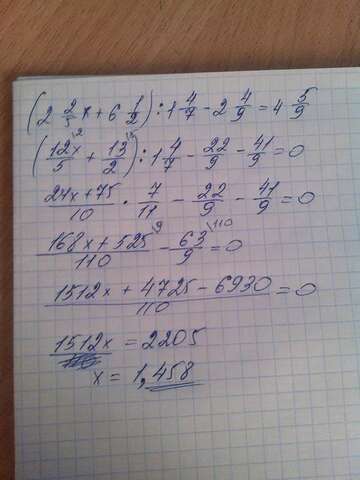 (2 2/5 x + 6 1/2) : 1 4/7 - 2 4/9 = 4 5/9
(12x/5 + 13/2) : 1 4/7 - 22/9 - 41/9 = 0
24x + 75/10 · 7/11 - 22/9 - 41/9 = 0
168x + 525/110 - 63/9 = 0
1512x + 4725 - 6930/110 = 0
1512x = 2205
x = 1,458